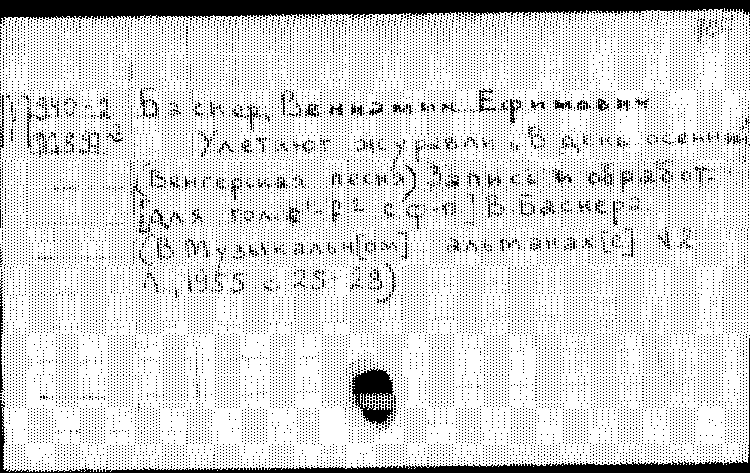 Баснер, Вениамин Ефимович
Улетают журавли „В день осенний
(Венгерская песня) Запись и обработ.
[для голоса с ф-п] В. Баснера
(В Музыкальн[ом] альманах[е] N 2
Л., 1955 с. 25-29)